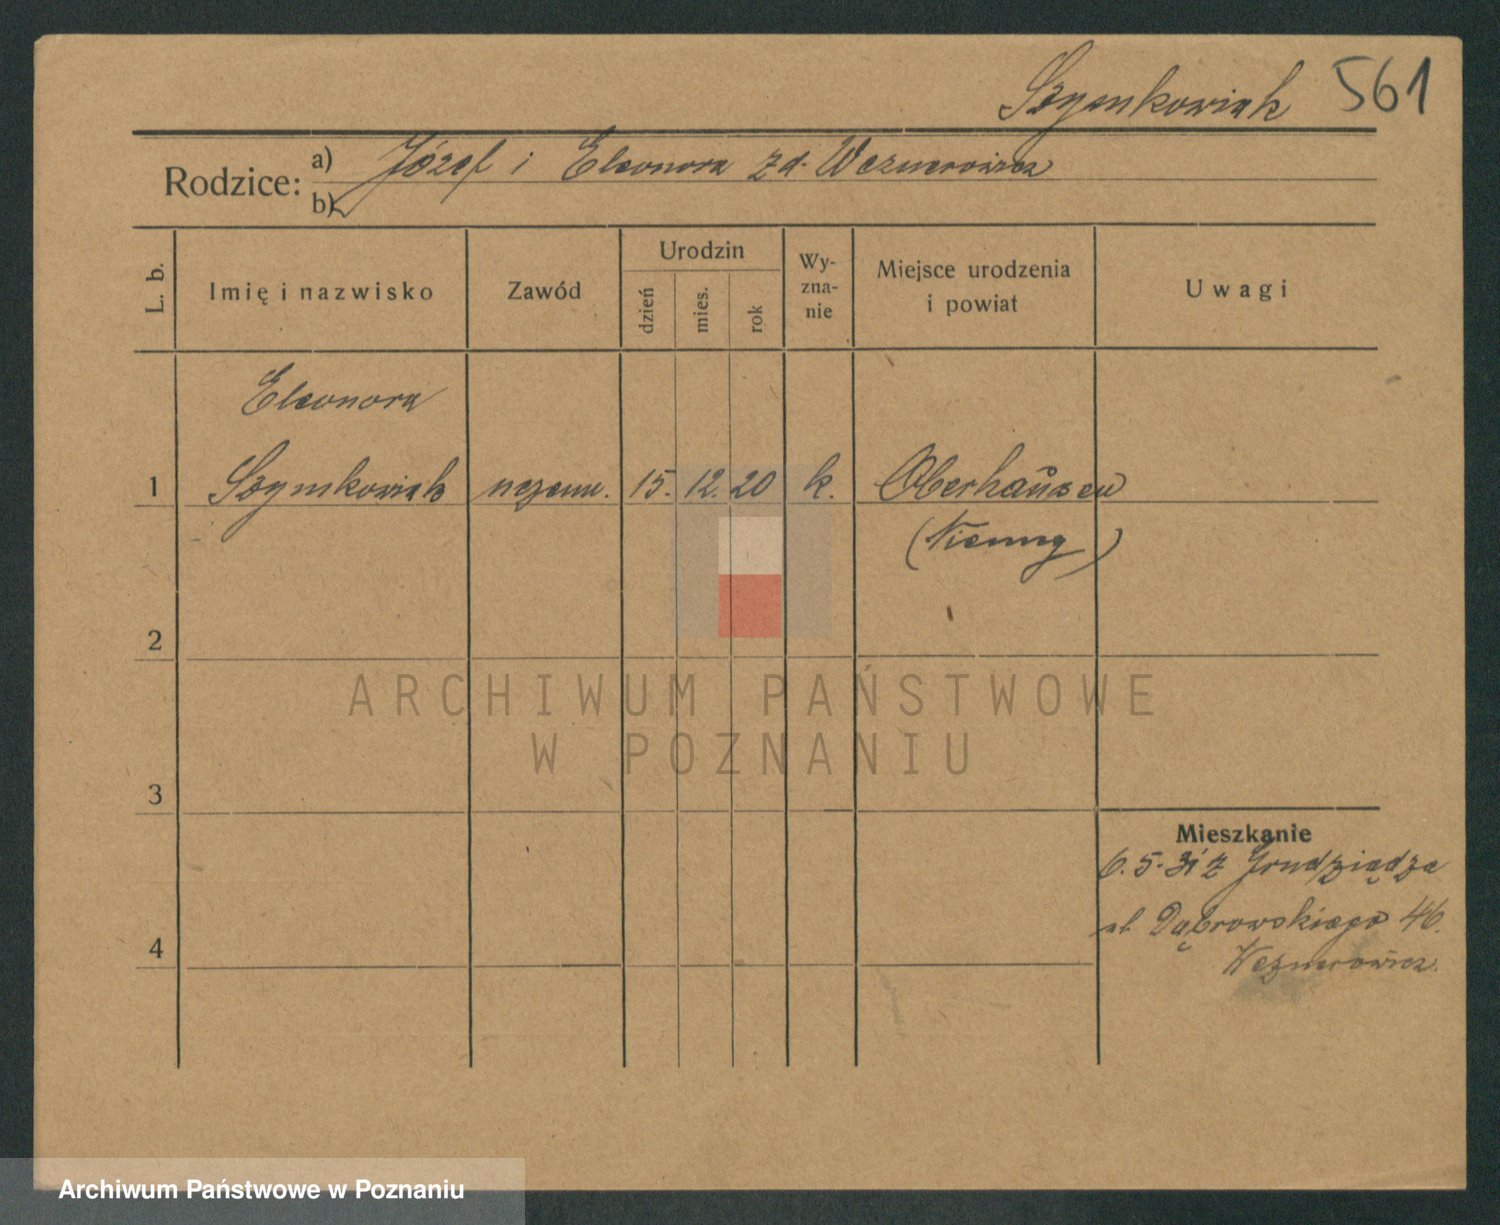 Szymkowiak 561
Rodzice: a) Józef i Eleonora zd. Weznerowicz
b)
L. b. Imię i nazwisko Zawód Urodzin dzień mies. rok Wy-zna-nie Miejsce urodzenia i powiat Uwagi
Eleonora
1 Szymkowiak 15. 12. 20 k. Oberhausen
(Niemcy)
2
ARCHIWUM PAŃSTWOWE
W POZNANIU
3
Mieszkanie
6. 5. 31 z Grudziądza
ul. Dąbrowskiego 46.
4
Weznerowicz.
Archiwum Państwowe w Poznaniu